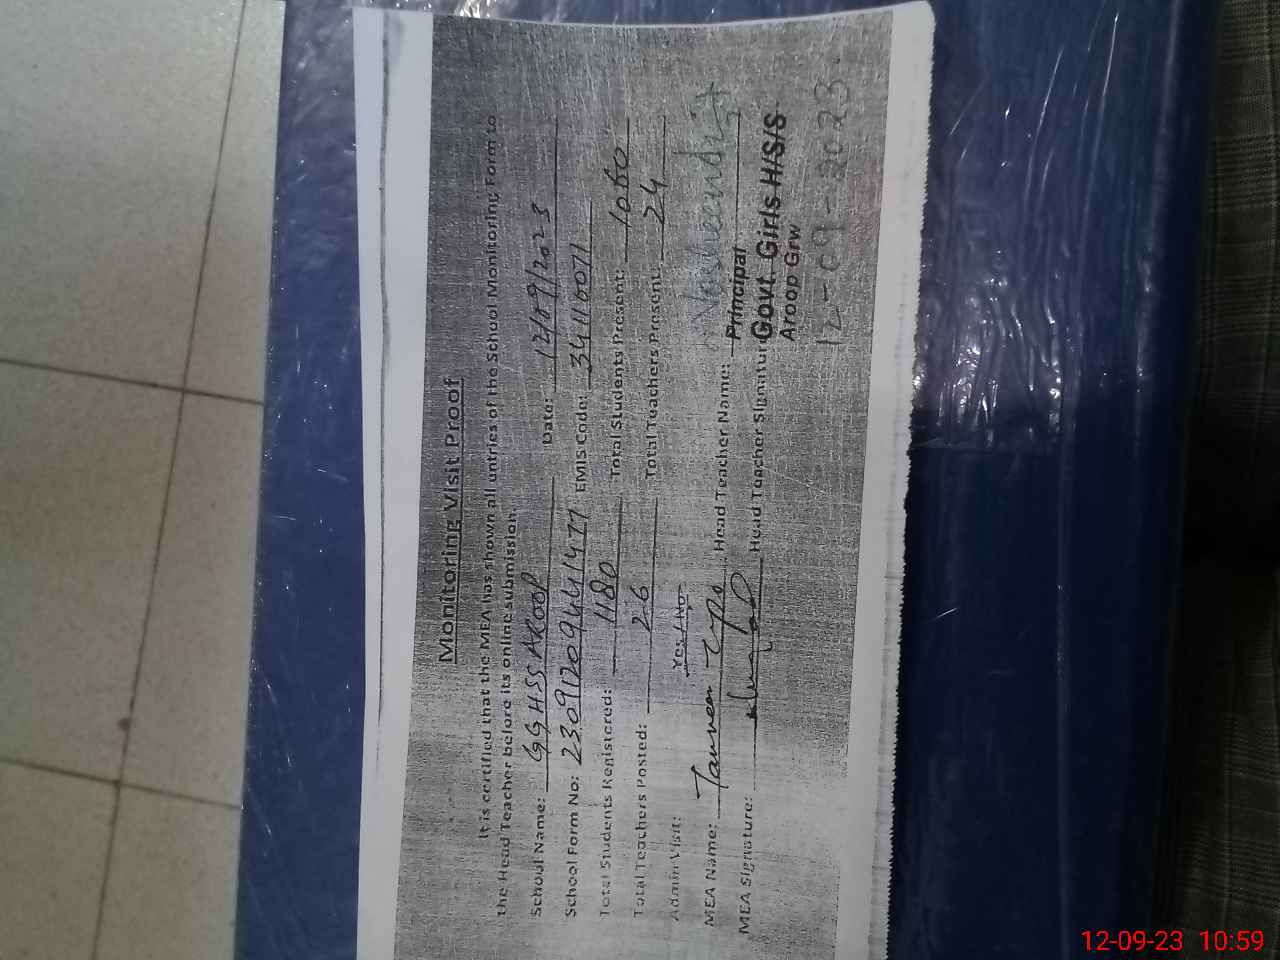 Monitoring Visit Proof
It is certified that the MEA has shown all entries of the School Monitoring Form to
the Head Teacher before its online submission.
School Name: GGHSS AROOP Date: 12/09/2023
School Form No: 230912094441477 EMIS Code: 34110071
Total Students Registered: 1180 Total Students Present: 1060
Total Teachers Posted: 26 Total Teachers Present: 24
Admin Visit: Yes / No
MEA Name: Head Teacher Name:
Principal
MEA Signature: Head Teacher Signature
Govt. Girls H/S/S
Aroop Grw
12-09-2023
12-09-23 10:59